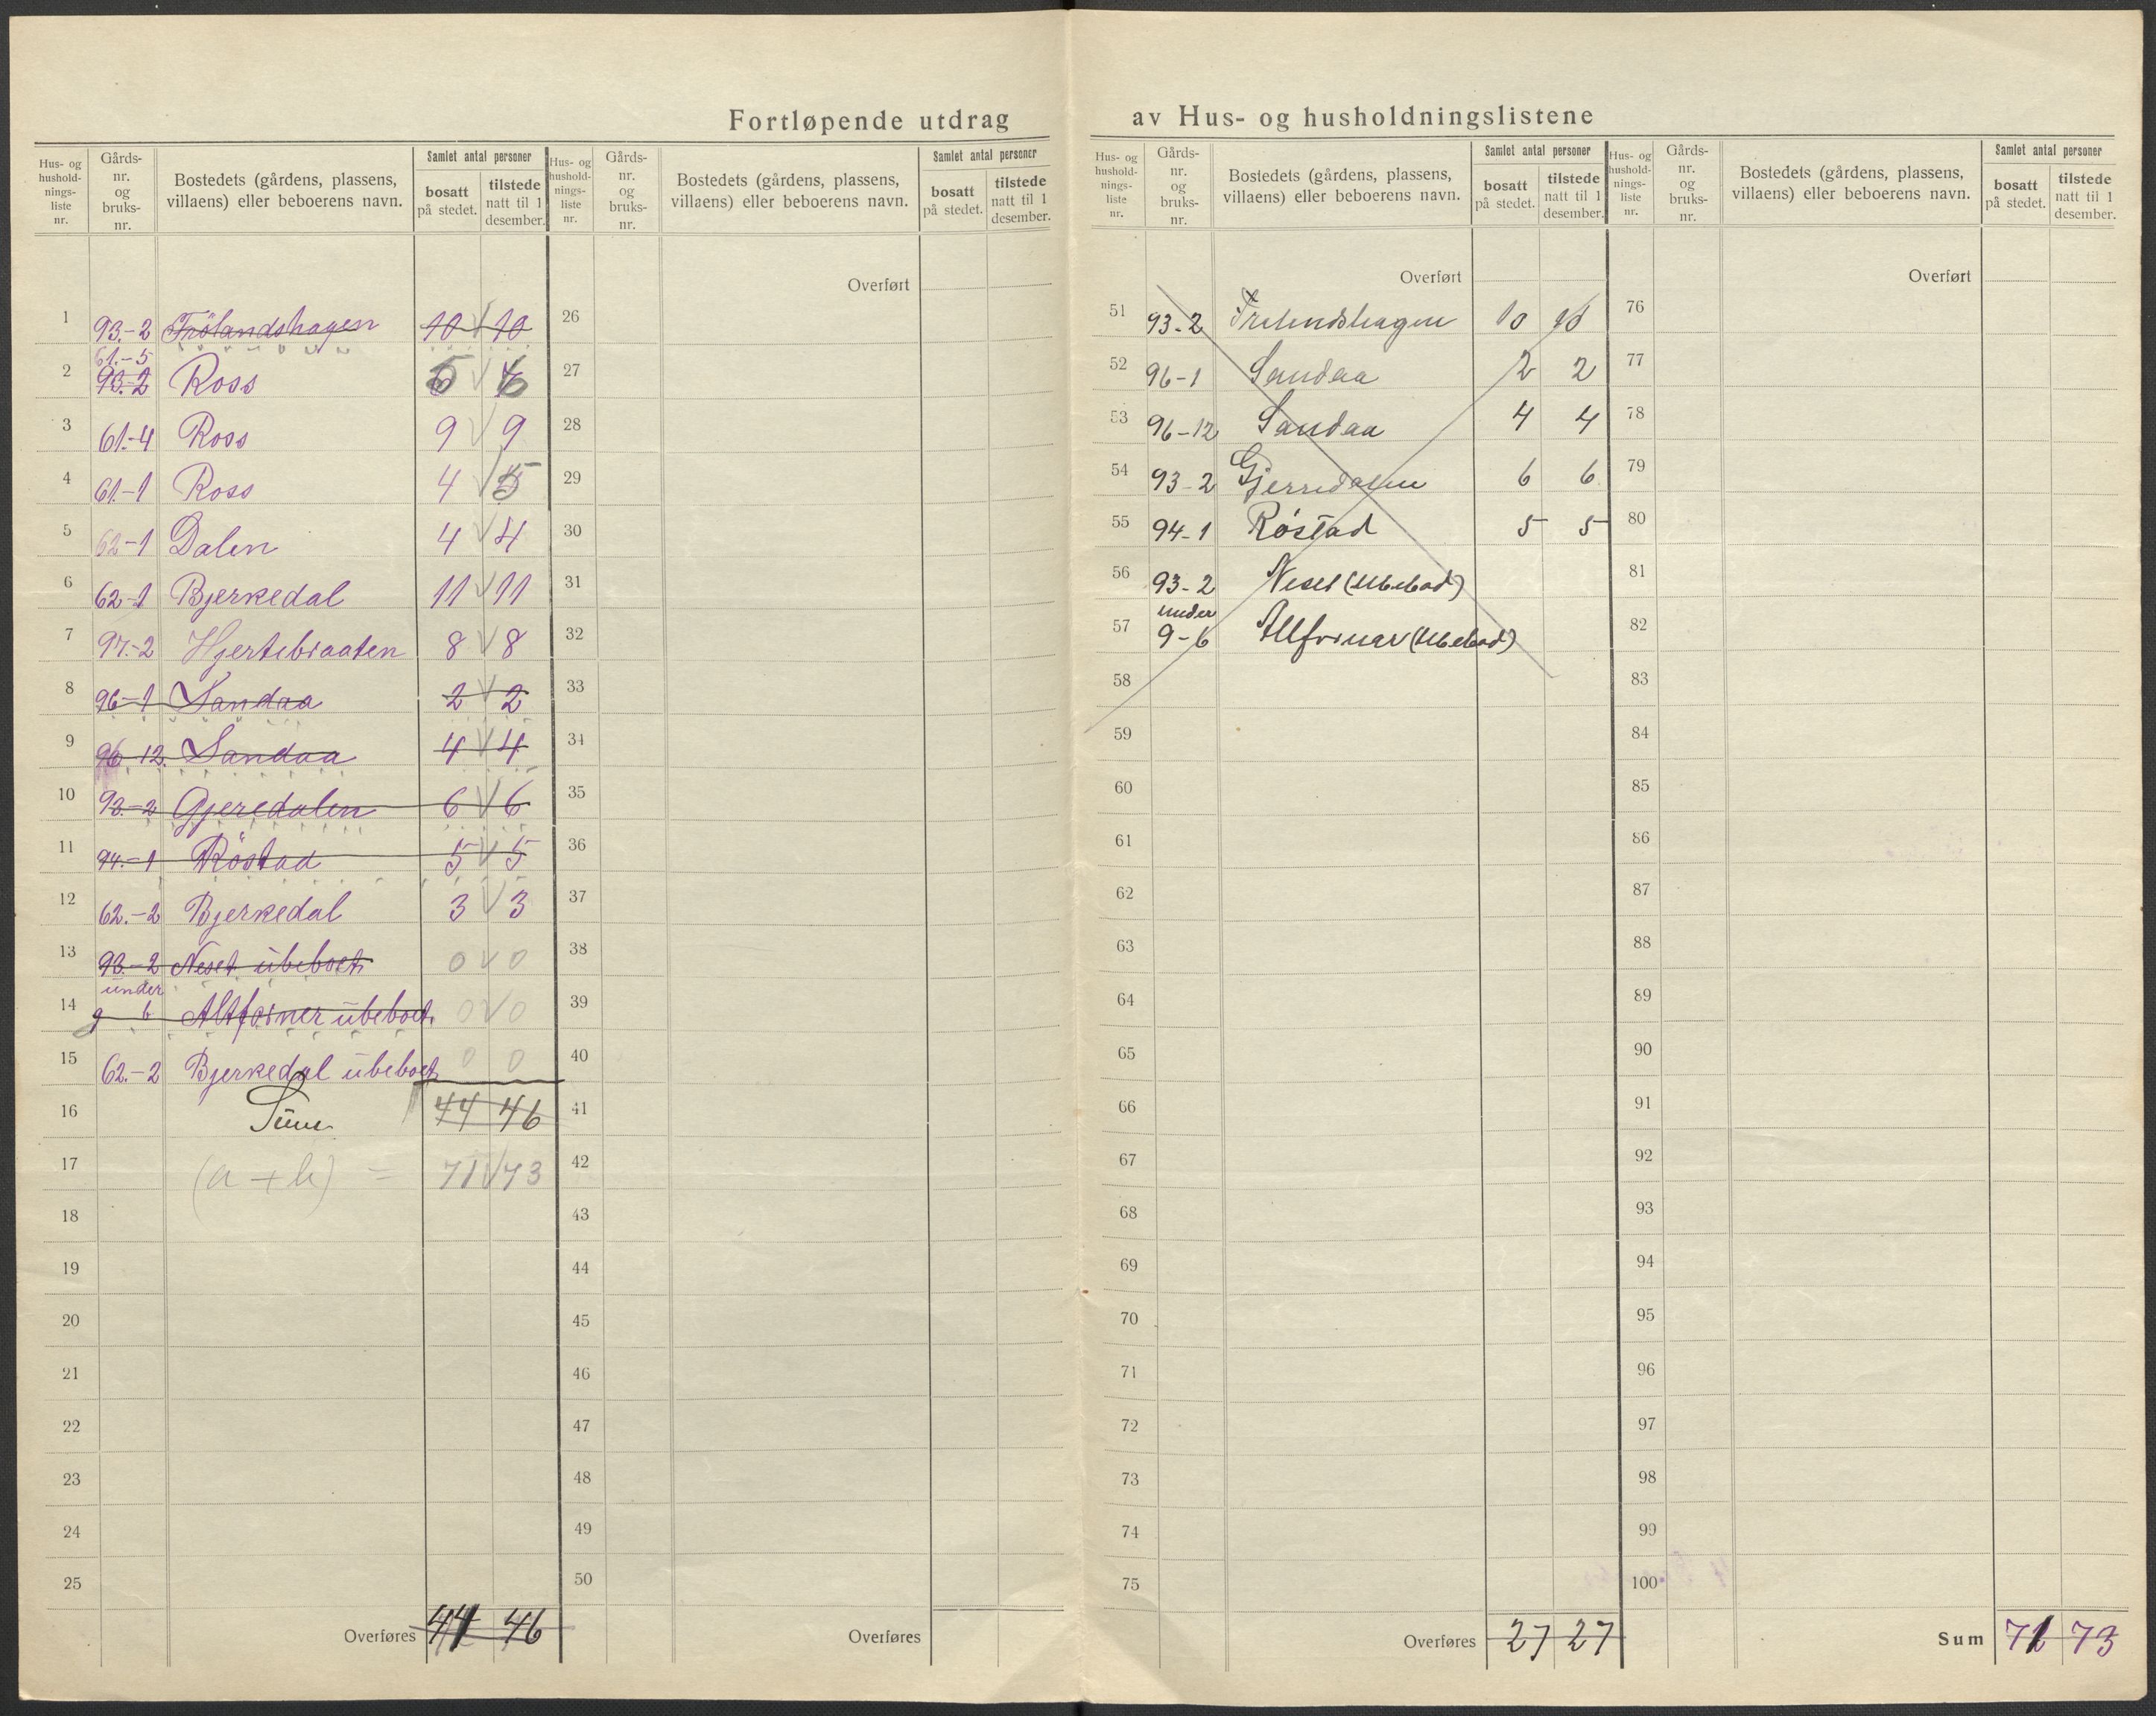 Fortløpende utdrag av Hus- og husholdningslistene
Hus- og hushold- nings- liste nr. | Gårds- nr. og bruks- nr. | Bostedets (gårdens, plassens, villaens) eller beboerens navn. | Samlet antal personer | bosatt på stedet. | tilstede natt til 1 desember.
Hus- og hushold- nings- liste nr. | Gårds- nr. og bruks- nr. | Bostedets (gårdens, plassens, villaens) eller beboerens navn. | Samlet antal personer | bosatt på stedet. | tilstede natt til 1 desember.
Overført
1 93.-2 Frölandshagen 10 10
61.-5
2 93.-2 Ross 6
3 61.-4 Ross 9 9
4 61.-1 Ross 4 5
5 62-1 Dalen 4 4
6 62-1 Bjerkedal 11 11
7 97.-2 Hjertebraaten 8 8
8 96-1 Sandaa 2 2
9 96 12. Sandaa 4 4
10 93.-2 Gjeredalen 6 6
11 94.-1 Röstad 5 5
12 62.-2 Bjerkedal 3 3
13 93.-2 Neset ubeboet. 0 0
under
14 9 6 Altforner ubeboet. 0 0
15 62.-2 Bjerkedal ubeboet 0 0
16 Sum 44 46
17 (a + b) = 71 73
18
19
20
21
22
23
24
25
Overføres 44 46
26
27
28
29
30
31
32
33
34
35
36
37
38
39
40
41
42
43
44
45
46
47
48
49
50
Overføres
Hus- og hushold- nings- liste nr. | Gårds- nr. og bruks- nr. | Bostedets (gårdens, plassens, villaens) eller beboerens navn. | Samlet antal personer | bosatt på stedet. | tilstede natt til 1 desember.
Hus- og hushold- nings- liste nr. | Gårds- nr. og bruks- nr. | Bostedets (gårdens, plassens, villaens) eller beboerens navn. | Samlet antal personer | bosatt på stedet. | tilstede natt til 1 desember.
Overført
51 93-2 Frelendshagen 10 10
52 96-1 Sandaa 2 2
53 96-12 Sandaa 4 4
54 93-2 Gjerredalen 6 6
55 94-1 Röstad 5 5
56 93-2 Neset (Ubebod)
under
57 9-6 Altforner (Ubebod)
58
59
60
61
62
63
64
65
66
67
68
69
70
71
72
73
74
75
Overføres 27 27
Overført
76
77
78
79
80
81
82
83
84
85
86
87
88
89
90
91
92
93
94
95
96
97
98
99
100
Sum 71 73